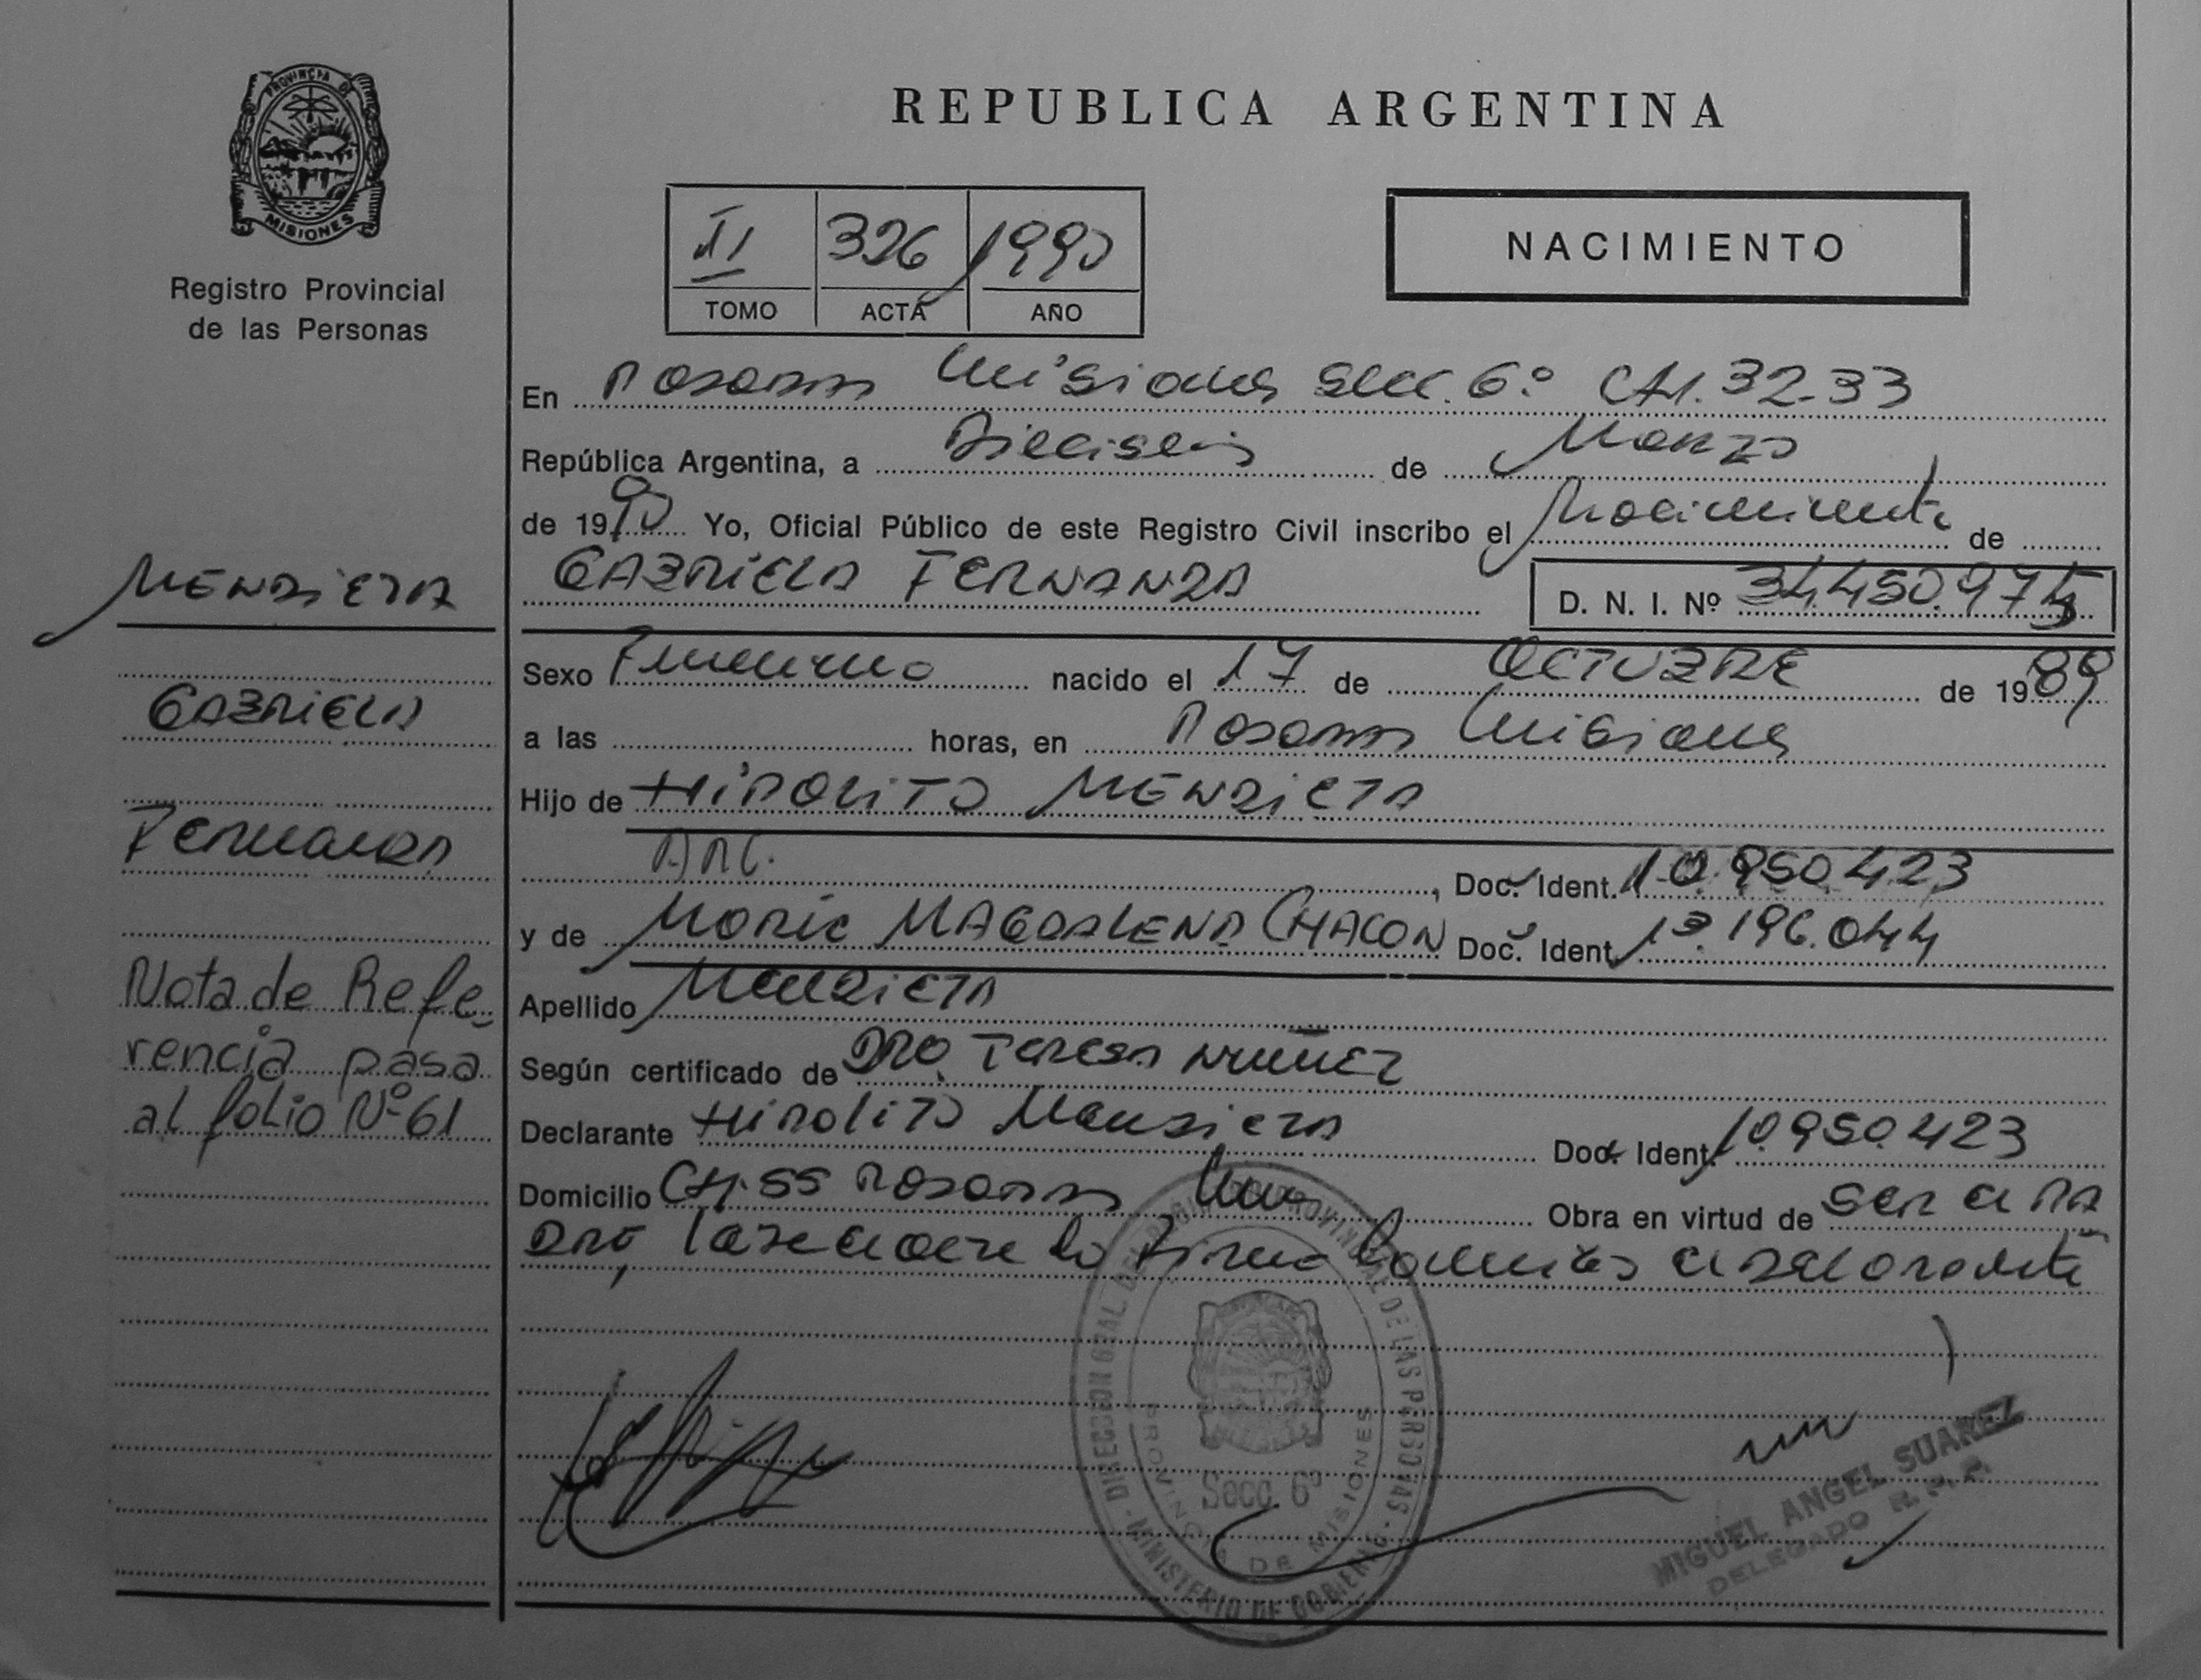 PROVINCIA DE
MISIONES
Registro Provincial
de las Personas
REPUBLICA ARGENTINA
II 326 1990
TOMO ACTA AÑO
NACIMIENTO
En Posadas Misiones Secc. 6º CH. 32-33
República Argentina, a Dieciseis de Marzo
de 1990 Yo, Oficial Público de este Registro Civil inscribo el Nacimiento de
GABRIELA FERNANDA D. N. I. Nº 34.450.975
MENDIETA
GABRIELA
Fernanda
Nota de Refe-
rencia pasa
al folio Nº 61
Sexo Femenino nacido el 17 de OCTUBRE de 1989
a las horas, en Posadas Misiones
Hijo de HIPOLITO MENDIETA
ARG. , Doc. Ident. 10.950.423
y de MAGDALENA CHACON Doc. Ident. 13.196.044
Apellido MENDIETA
Según certificado de DRA. Teresa NUÑEZ
Declarante HIPOLITO Mendieta Doc. Ident. 10.950.423
Domicilio CH. 55 Posadas Mnes Obra en virtud de Ser el PA
DRE, Leida el acta la Firma el declarante
DIRECCION GRAL. DEL REGISTRO PROVINCIAL DE LAS PERSONAS - MINISTERIO DE GOBIERNO -
Secc. 6º
PROVINCIA DE MISIONES
MIGUEL ANGEL SUAREZ
DELEGADO R. P. P.